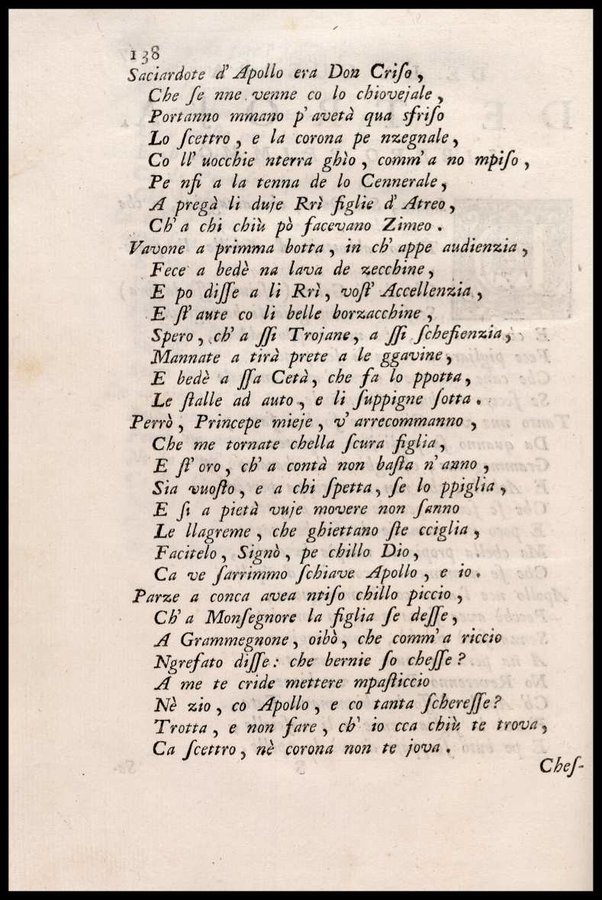 138
Saciardote d' Apollo era Don Criſo,
Che ſe nne venne co lo chiovejale,
Portanno mmano p' avetà qua sfriſo
Lo ſcettro, e la corona pe nzegnale,
Co ll' uocchie nterra ghìo, comm' a no mpiſo,
Pe nſi a la tenna de lo Cennerale,
A pregà li duje Rrì figlie d' Atreo,
Ch' a chi chiù pò facevano Zimeo.
Vavone a primma botta, in ch' appe audienzia,
Fece a bedè na lava de zecchine,
E po diſſe a li Rrì, voſt' Accellenzia,
E ſt' aute co li belle borzacchine,
Spero, ch' a ſſi Trojane, a ſſi ſchefienzia,
Mannate a tirà prete a le ggavine,
E bedè a ſſa Cetà, che fa lo ppotta,
Le ſtalle ad auto, e li ſuppigne ſotta.
Perrò, Princepe mieje, v' arrecommanno,
Che me tornate chella ſcura figlia,
E ſt' oro, ch' a contà non baſta n' anno,
Sia vuoſto, e a chi ſpetta, ſe lo ppiglia,
E ſi a pietà vuje movere non ſanno
Le llagreme, che ghiettano ſte cciglia,
Facitelo, Signò, pe chillo Dio,
Ca ve ſarrimmo ſchiave Apollo, e io.
Parze a conca avea ntiſo chillo piccio,
Ch' a Monſegnore la figlia ſe deſſe,
A Grammegnone, oibò, che comm' a riccio
Ngrefato diſſe: che bernie ſo cheſſe?
A me te cride mettere mpaſticcio
Nè zio, co Apollo, e co tanta ſchereſſe?
Trotta, e non fare, ch' io cca chiù te trova,
Ca ſcettro, nè corona non te jova.
Cheſ-